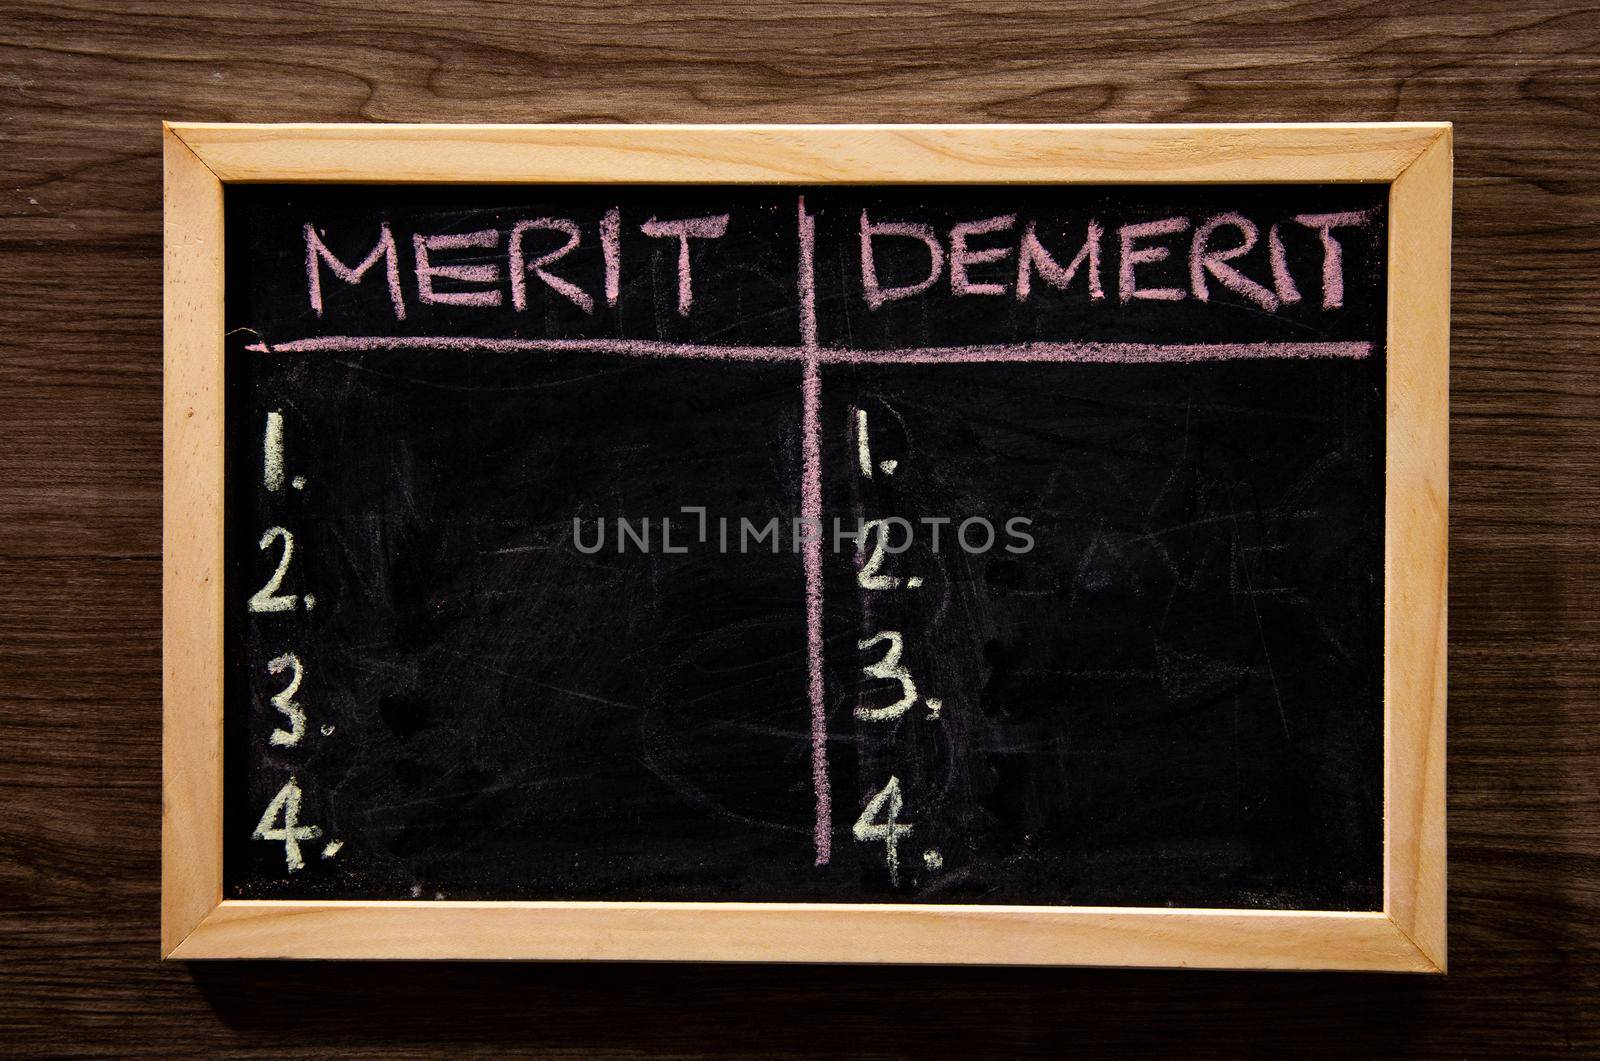 MERIT DEMERIT
1. 1.
2. 2.
3. 3.
4. 4.
UNLIMPHOTOS